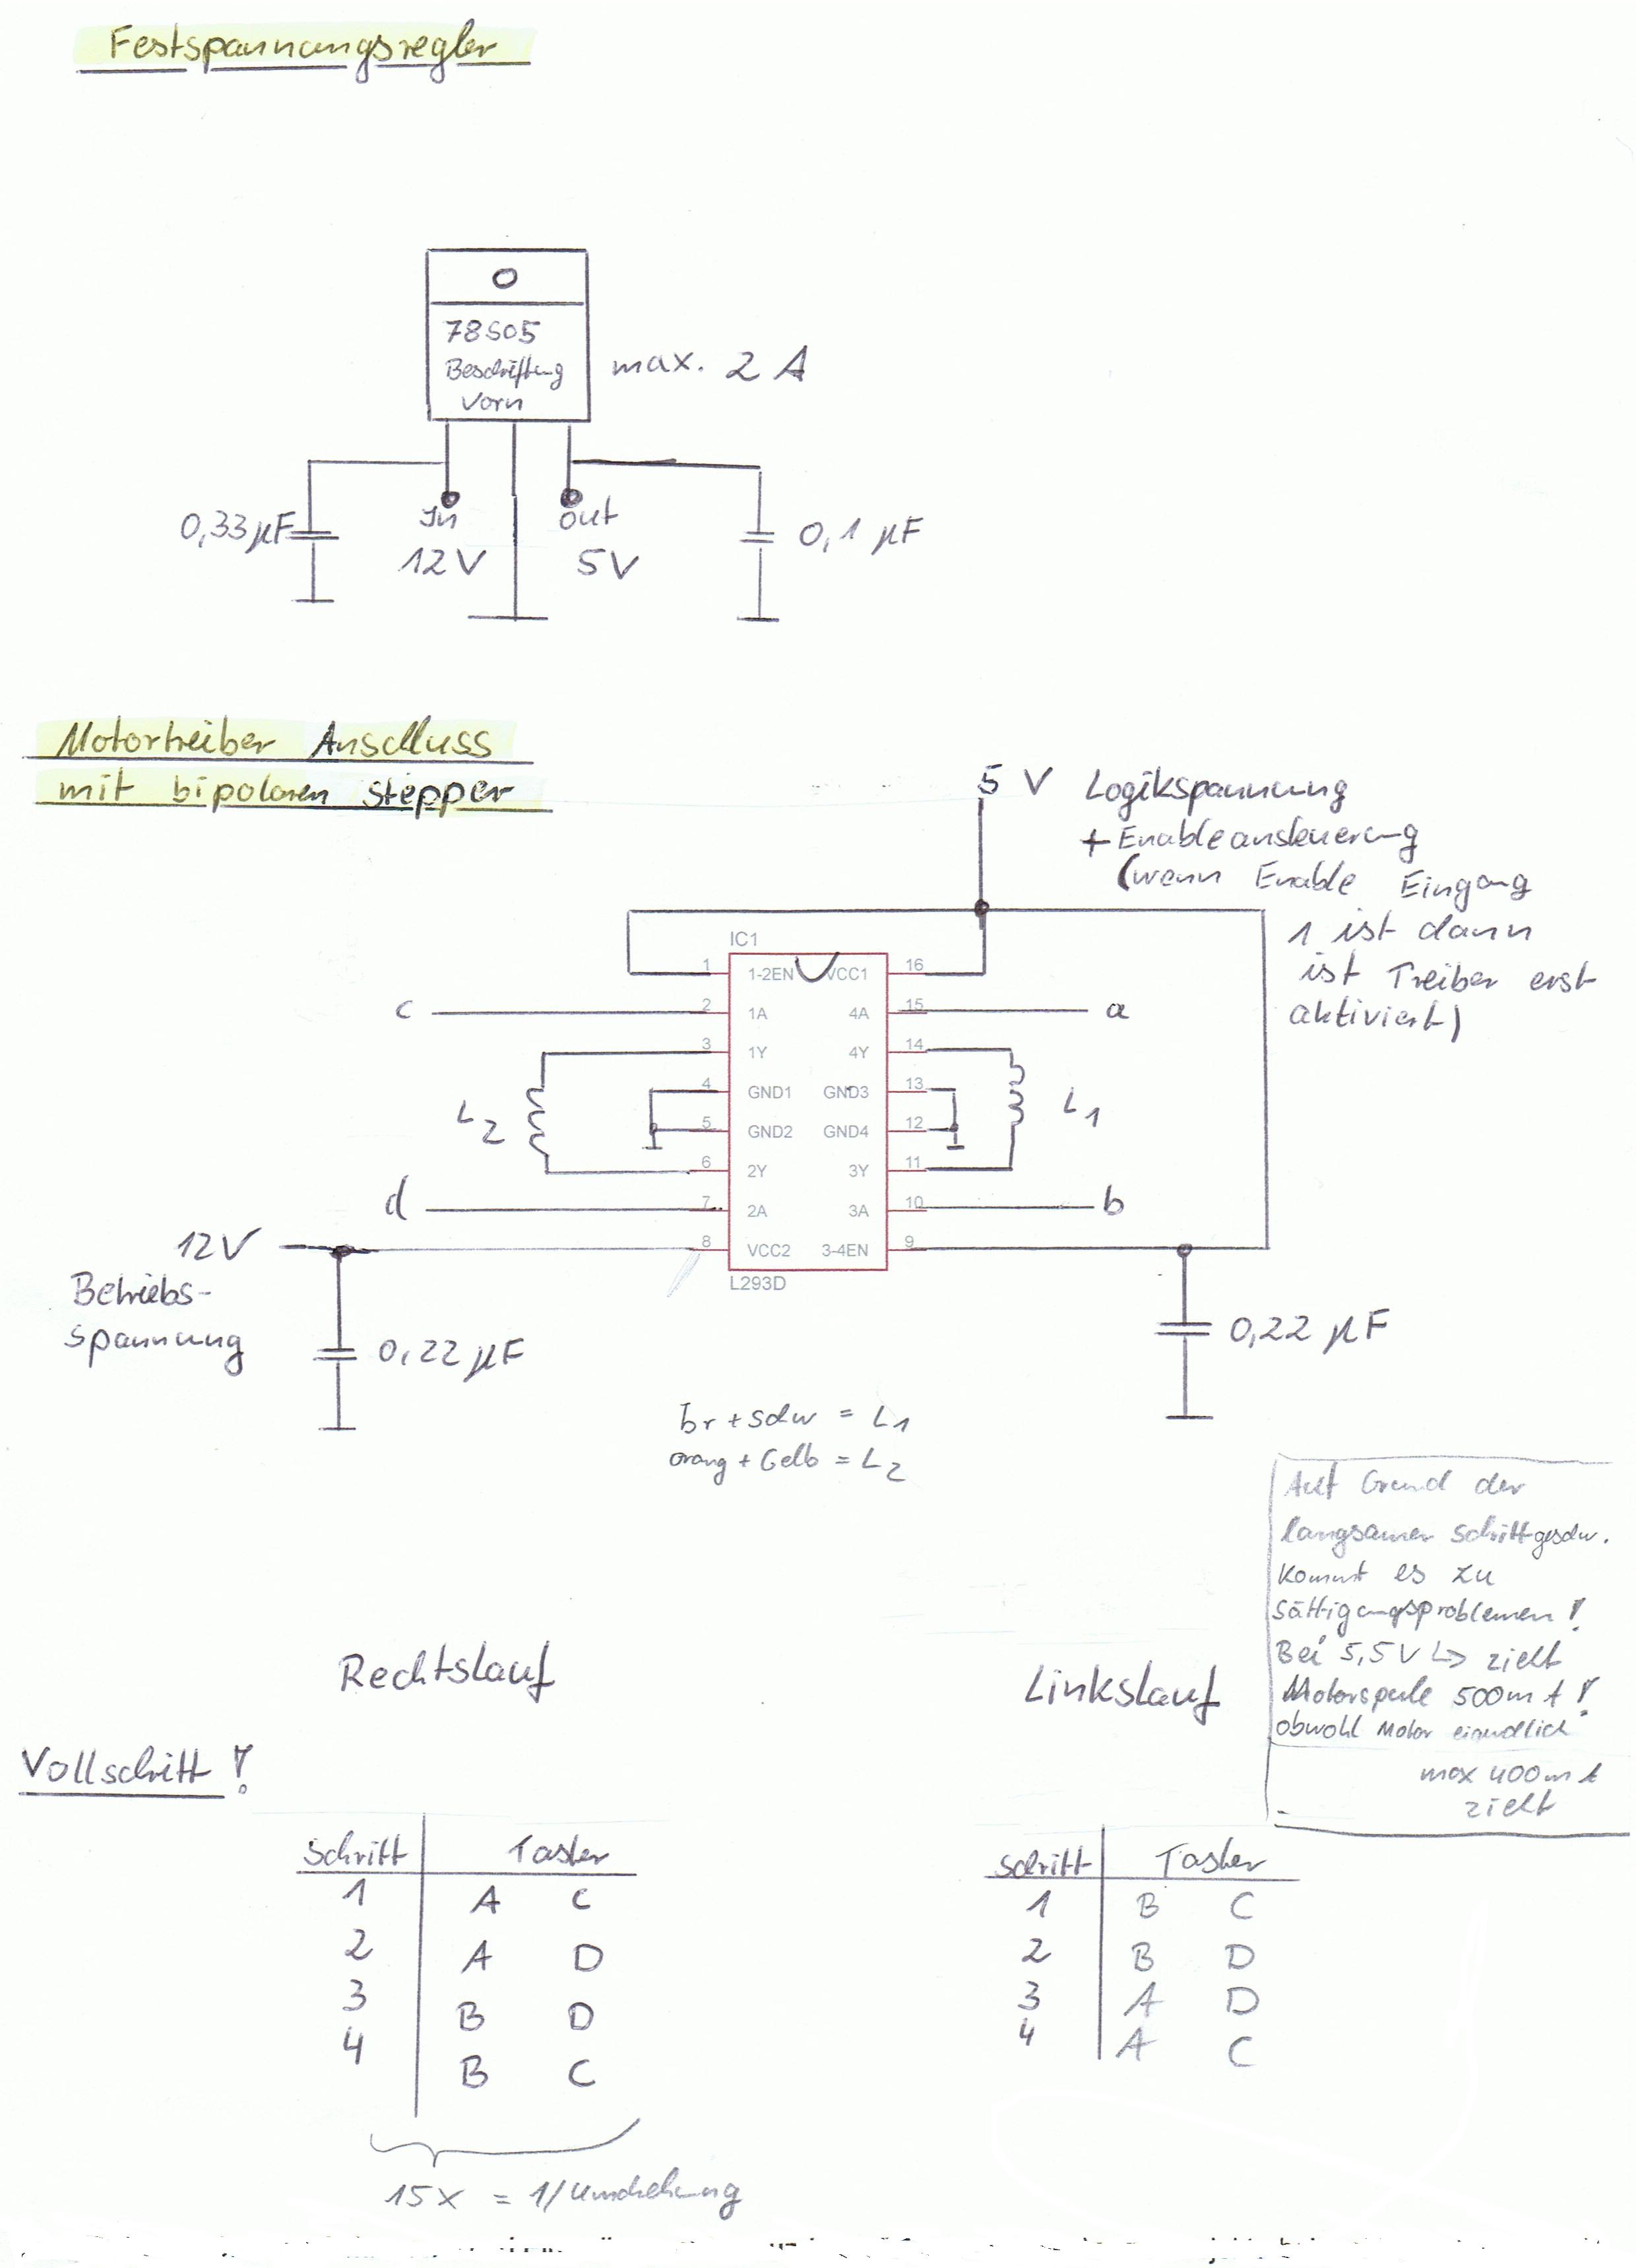 Festspannungsregler
78S05
Beschriftung
Vorn
max. 2 A
0,33 µF
In
12V
out
5V
0,1 µF
Motortreiber Anschluss
mit bipolaren stepper
5 V Logikspannung
+ Enableansteuerung
(wenn Enable Eingang
1 ist dann
ist Treiber erst
aktiviert)
IC1
1 1-2EN VCC1 16
c 2 1A 4A 15 a
3 1Y 4Y 14
4 GND1 GND3 13
L2 5 GND2 GND4 12 L1
6 2Y 3Y 11
d 7 2A 3A 10 b
12V 8 VCC2 3-4EN 9
L293D
Betriebs-
spannung
0,22 µF
0,22 µF
br + schw = L1
orang + Gelb = L2
Auf Grund der
langsamen Schrittgeschw.
kommt es zu
Sättigungsproblemen!
Bei 5,5V ↳ zieht
Motorspule 500mA!
obwohl Motor eigendlich
max 400mA
zieht
Rechtslauf
Linkslauf
Vollschritt!
Schritt Taster
1 A C
2 A D
3 B D
4 B C
15x = 1/Umdrehung
Schritt Taster
1 B C
2 B D
3 A D
4 A C